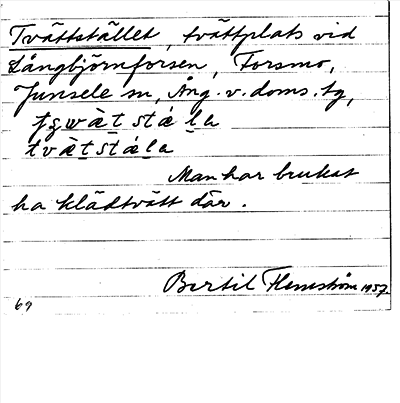 Tvättstället, tvättplats vid
Långbjörnforsen, Forsmo,
Junsele sn, Ång. v. doms. tg,
tvàt stá la
Man har brukat
ha klädtvätt där.
Bertil Flemström 1957.
69